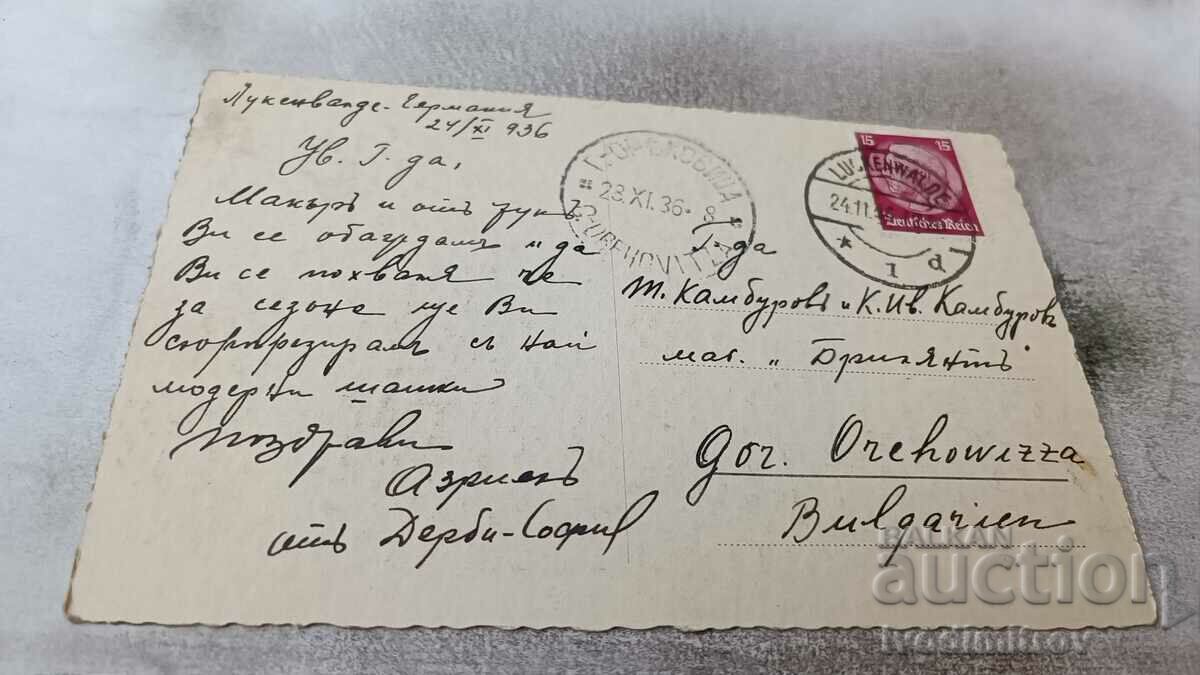 Лукенвалде - Германия
24/XI 936
Ув. Г-да,
Макъръ и отъ тукъ
Ви се обаждамъ и да
Ви се похваля че
за сезона ще Ви
сюрпрезирамъ съ най
модерни шапки
Поздрави
Азриелъ
отъ Дерби-София
Г. ОРѢХОВИЦА
23.XI.36. 8
G. OREHOVITZA
15 15
Deutsches Reich
LUCKENWALDE
24.11.3
* 1 d
Г-да
Т. Камбуровъ и К. Ив. Камбуровъ
маг. „Бриляянтъ"
Gor. Orehowizza
Bulgarien
BALKAN
auction
ivodimitrov